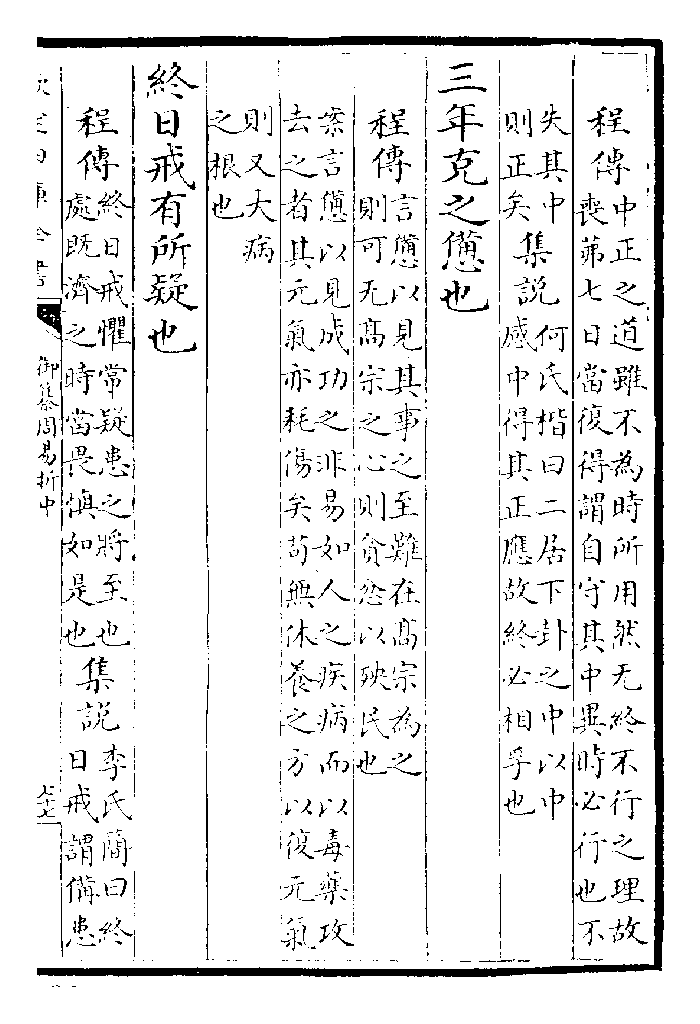 程傳中正之道雖不為時所用然无終不行之理故
喪茀七日當復得謂自守其中異時必行也不
失其中
則正矣
集說何氏楷曰二居下卦之中以中
感中得其正應故終必相孚也
三年克之憊也
程傳言憊以見其事之至難在髙宗為之
則可无髙宗之心則貪忿以殃民也
案言憊以見成功之非易如人之疾病而以毒藥攻
去之者其元氣亦耗傷矣苟無休養之方以復元氣
則又大病
之根也
終日戒有所疑也
程傳終日戒懼常疑患之將至也
處既濟之時當畏慎如是也
集說李氏簡曰終
日戒謂備患
欽定四庫全書
御纂周易折中